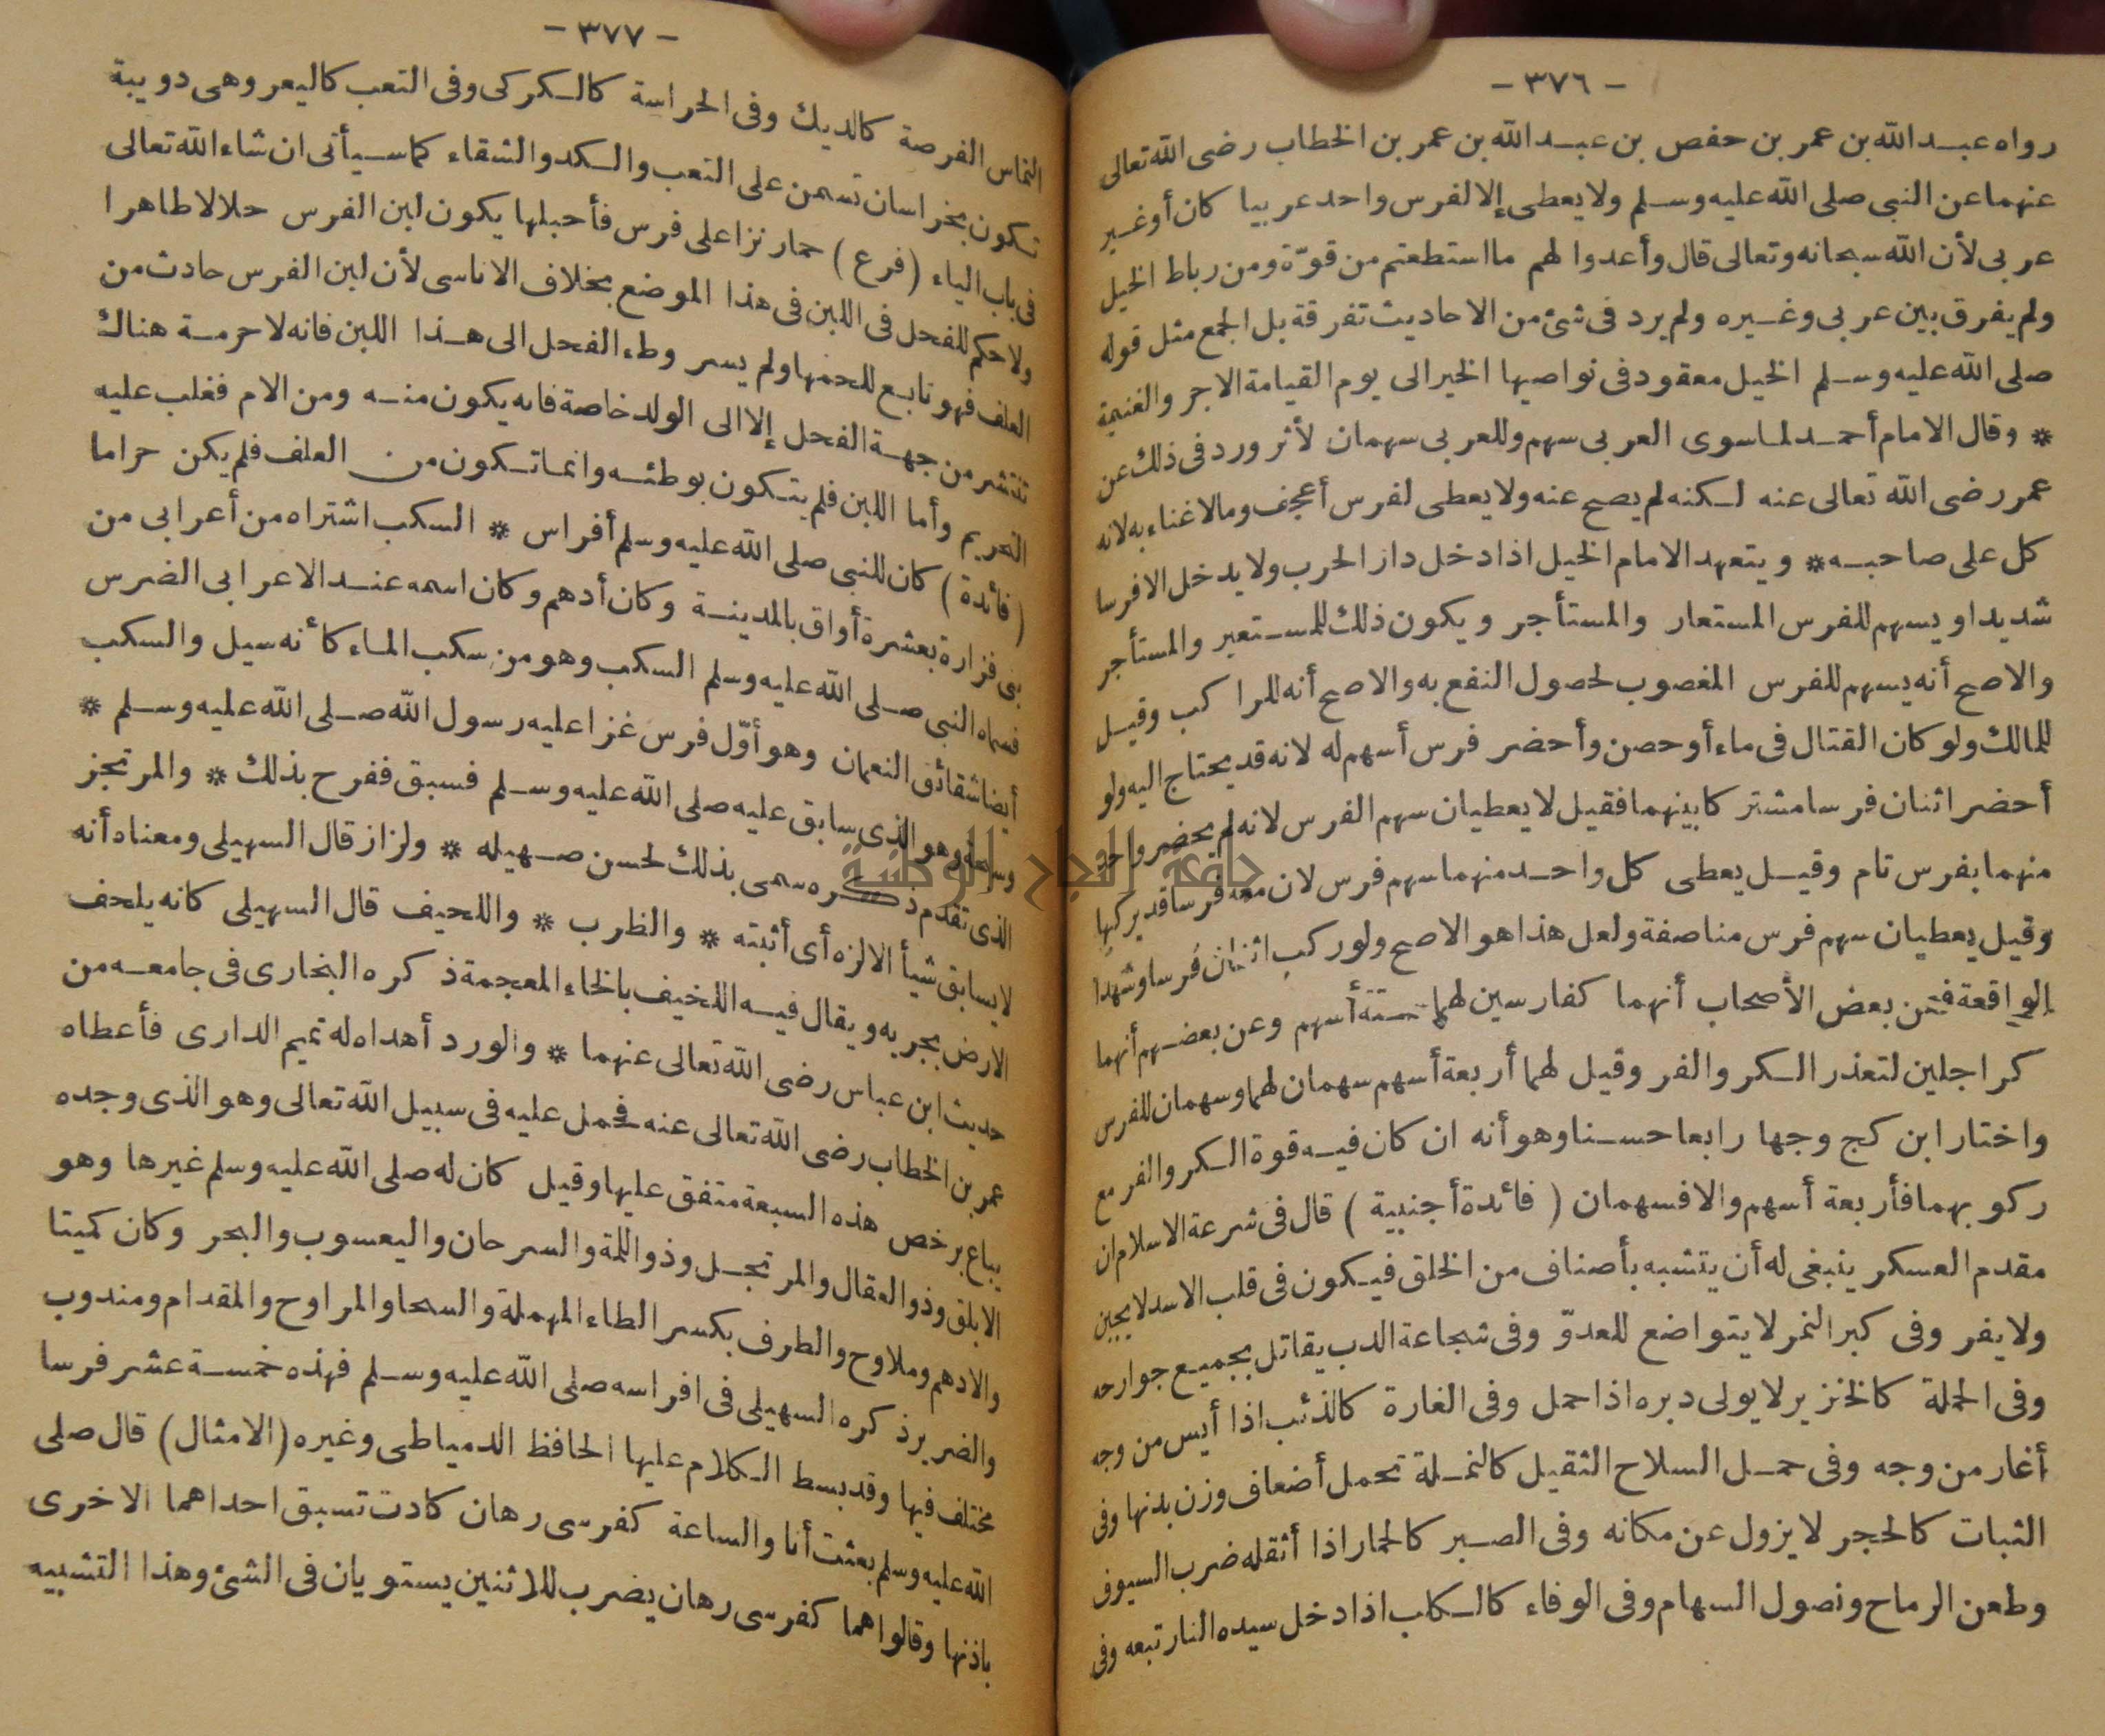 - ٣٧٦ -
رواه عبد الله بن عمر بن حفص بن عبد الله بن عمر بن الخطاب رضى الله تعالى
عنهما عن النبى صلى الله عليه وسلم ولا يعطى إلا لفرس واحد عربيا كان أو غير
عربى لأن الله سبحانه وتعالى قال وأعدوا لهم ما استطعتم من قوّة ومن رباط الخيل
ولم يفرق بين عربى وغيره ولم يرد فى شئ من الاحاديث تفرقة بل الجمع مثل قوله
صلى الله عليه وسلم الخيل معقود فى نواصيها الخير الى يوم القيامة الاجر والغنيمة
* وقال الامام أحمد لما سوى العربى سهم وللعربى سهمان لأثر ورد فى ذلك عن
عمر رضى الله تعالى عنه لكنه لم يصح عنه ولا يعطى لفرس أعجف وما لا غناء به لانه
كل على صاحبه * ويتعهد الامام الخيل اذا دخل دار الحرب ولا يدخل الا فرسا
شديدا ويسهم للفرس المستعار والمستأجر ويكون ذلك للمستعير والمستأجر
والاصح أنه يسهم للفرس المغصوب لحصول النفع به والاصح أنه للراكب وقيل
للمالك ولو كان القتال فى ماء أو حصن وأحضر فرس أسهم له لانه قد يحتاج اليه ولو
أحضر اثنان فرسا مشتركا بينهما فقيل لا يعطيان سهم الفرس لانه لم يحضر واحد
منهما بفرس تام وقيل يعطى كل واحد منهما سهم فرس لان معه فرسا قد يركبها
وقيل يعطيان سهم فرس مناصفة ولعل هذا هو الاصح ولو ركب اثنان فرسا وشهدا
الواقعة فعن بعض الأصحاب أنهما كفارسين لهما ستة أسهم وعن بعضهم أنهما
كراجلين لتعذر الكر والفر وقيل لهما أربعة أسهم سهمان لهما وسهمان للفرس
واختار ابن كج وجها رابعا حسنا وهو أنه ان كان فيه قوة الكر والفر مع
ركوبهما فأربعة أسهم والا فسهمان ( فائدة أجنبية ) قال فى شرعة الاسلام ان
مقدم العسكر ينبغى له أن يتشبه بأصناف من الخلق فيكون فى قلب الاسد لا يجبن
ولا يفر وفى كبر النمر لا يتواضع للعدوّ وفى شجاعة الدب يقاتل بجميع جوارحه
وفى الحملة كالخنزير لا يولى دبره اذا حمل وفى الغارة كالذئب اذا أيس من وجه
أغار من وجه وفى حمل السلاح الثقيل كالنملة تحمل أضعاف وزن بدنها وفى
الثبات كالحجر لا يزول عن مكانه وفى الصبر كالحمار اذا أثقله ضرب السيوف
وطعن الرماح ونصول السهام وفى الوفاء كالكلب اذا دخل سيده النار تبعه وفى
- ٣٧٧ -
التماس الفرصة كالديك وفى الحراسة كالكركى وفى التعب كاليعر وهى دويبة
تكون بخراسان تسمن على التعب والكد والشقاء كما سيأتى ان شاء الله تعالى
فى باب الياء ( فرع ) حمار نزا على فرس فأحبلها يكون لبن الفرس حلالا طاهرا
ولا حكم للفحل فى اللبن فى هذا الموضع بخلاف الاناسى لأن لبن الفرس حادث من
العلف فهو تابع للحمها ولم يسر وطء الفحل الى هذا اللبن فانه لا حرمة هناك
تنتشر من جهة الفحل إلا الى الولد خاصة فانه يكون منه ومن الام فغلب عليه
التحريم وأما اللبن فلم يتكون بوطئه وانما تكون من العلف فلم يكن حراما
( فائدة ) كان للنبى صلى الله عليه وسلم أفراس * السكب اشتراه من أعرابى من
بنى فزارة بعشرة أواق بالمدينة وكان أدهم وكان اسمه عند الاعرابى الضرس
فسماه النبى صلى الله عليه وسلم السكب وهو من سكب الماء كأنه سيل والسكب
أيضا شقائق النعمان وهو أوّل فرس غزا عليه رسول الله صلى الله عليه وسلم *
وسبحة وهو الذى سابق عليه صلى الله عليه وسلم فسبق ففرح بذلك * والمرتجز
الذى تقدم ذكره سمى بذلك لحسن صهيله * ولزاز قال السهيلى ومعناه أنه
لا يسابق شيأ الا لزه أى أثبته * والظرب * واللحيف قال السهيلى كانه يلحف
الارض بجريه ويقال فيه اللخيف بالخاء المعجمة ذكره البخارى فى جامعه من
حديث ابن عباس رضى الله تعالى عنهما * والورد أهداه له تميم الدارى فأعطاه
عمر بن الخطاب رضى الله تعالى عنه فحمل عليه فى سبيل الله تعالى وهو الذى وجده
يباع برخص هذه السبعة متفق عليها وقيل كان له صلى الله عليه وسلم غيرها وهو
الابلق وذو العقال والمرتجل وذو اللمة والسرحان واليعسوب والبحر وكان كميتا
والادهم وملاوح والطرف بكسر الطاء المهملة والسحا والمراوح والمقدام ومندوب
والضرير ذكره السهيلى فى افراسه صلى الله عليه وسلم فهذه خمسة عشر فرسا
مختلف فيها وقد بسط الكلام عليها الحافظ الدمياطى وغيره (الامثال) قال صلى
الله عليه وسلم بعثت أنا والساعة كفرسى رهان كادت تسبق احداهما الاخرى
باذنها وقالوا هما كفرسى رهان يضرب للاثنين يستويان فى الشئ وهذا التشبيه
جامعة النجاح الوطنية